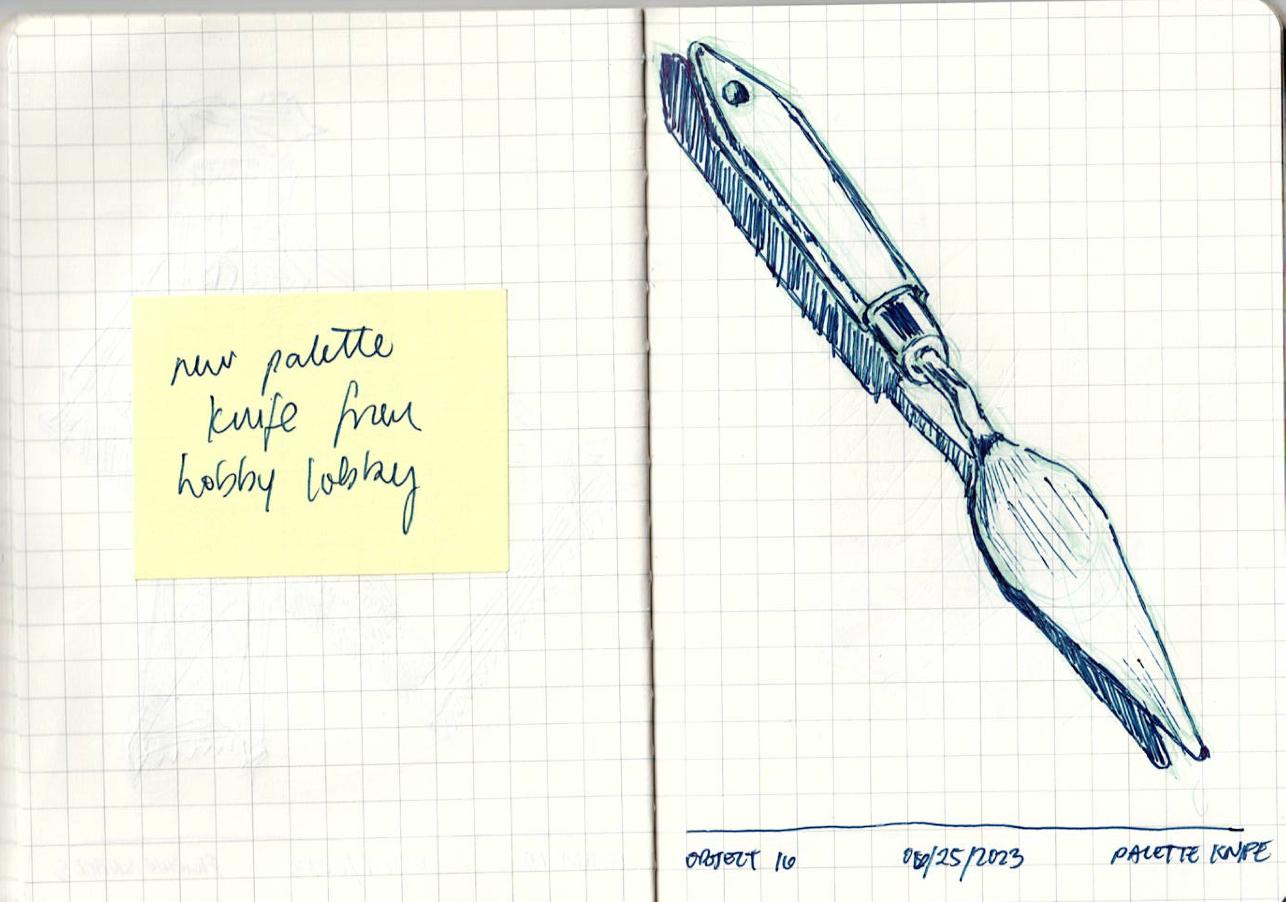 new palette
knife from
hobby lobby
OBJECT 16
/25/2023
PALETTE KNIFE